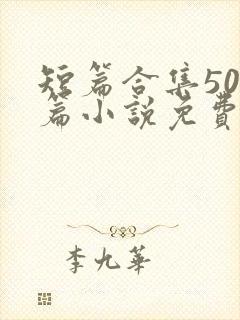 短篇合集50
篇小說免費
李九華